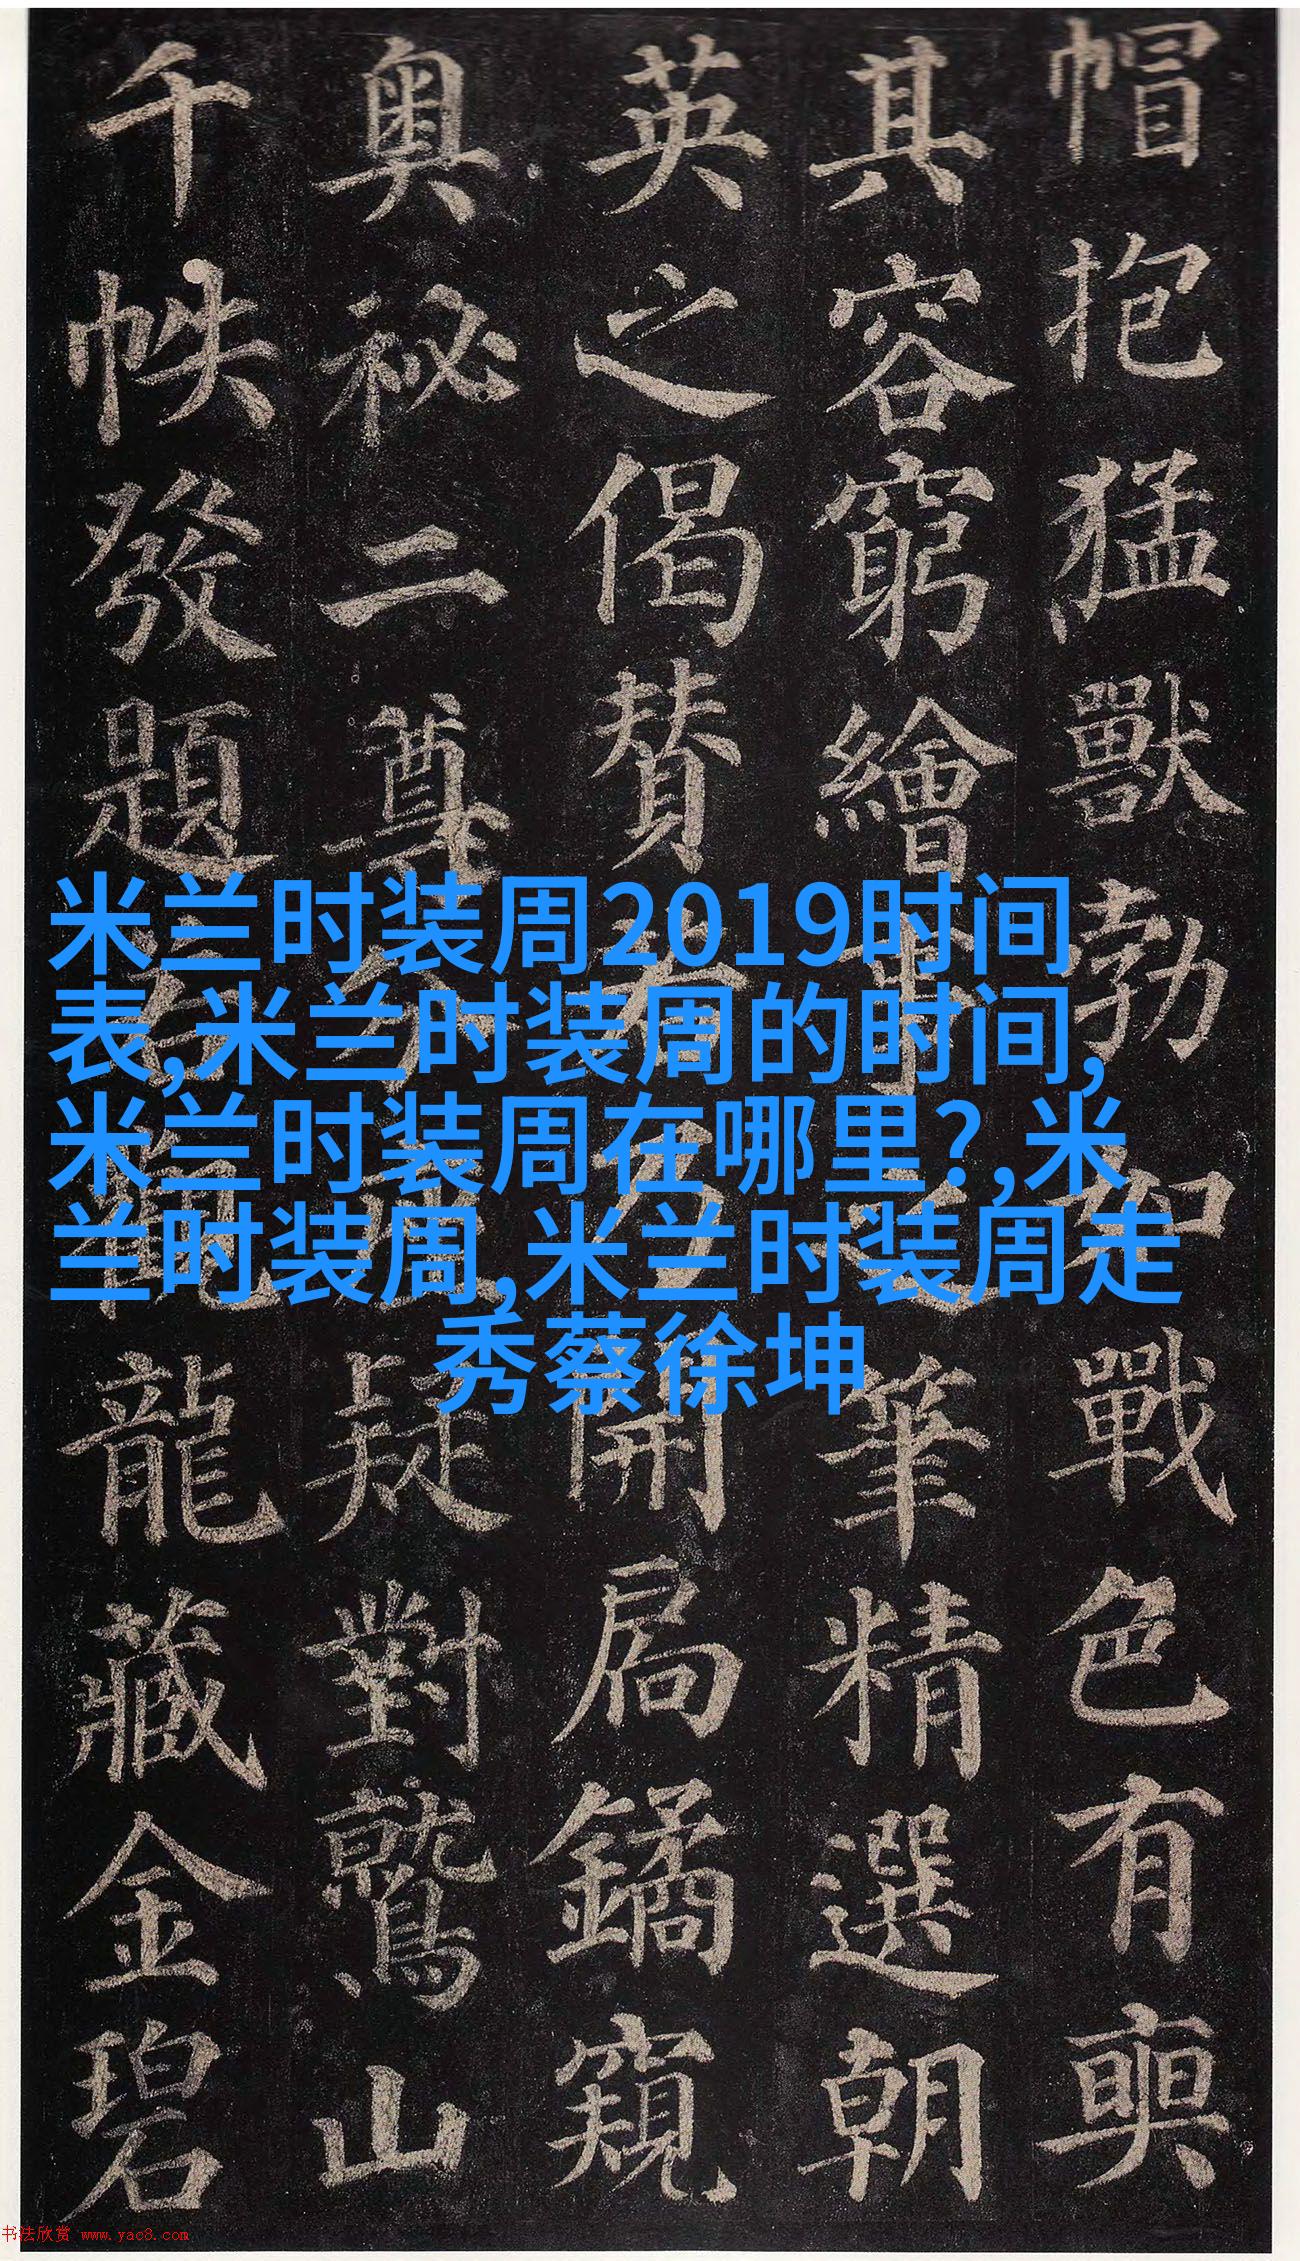 帽抱猛獸勃如戰色有奭
其容窮繪事之筆精選朝
英之偈贊若乃開扃鐍窺
奧秘二尊分座疑對鷲山
千帙發題若觀龍藏金碧
米兰时装周2019时间
表,米兰时装周的时间,
米兰时装周在哪里?,米
兰时装周,米兰时装周走
秀蔡徐坤
书法欣赏 www.yac8.com